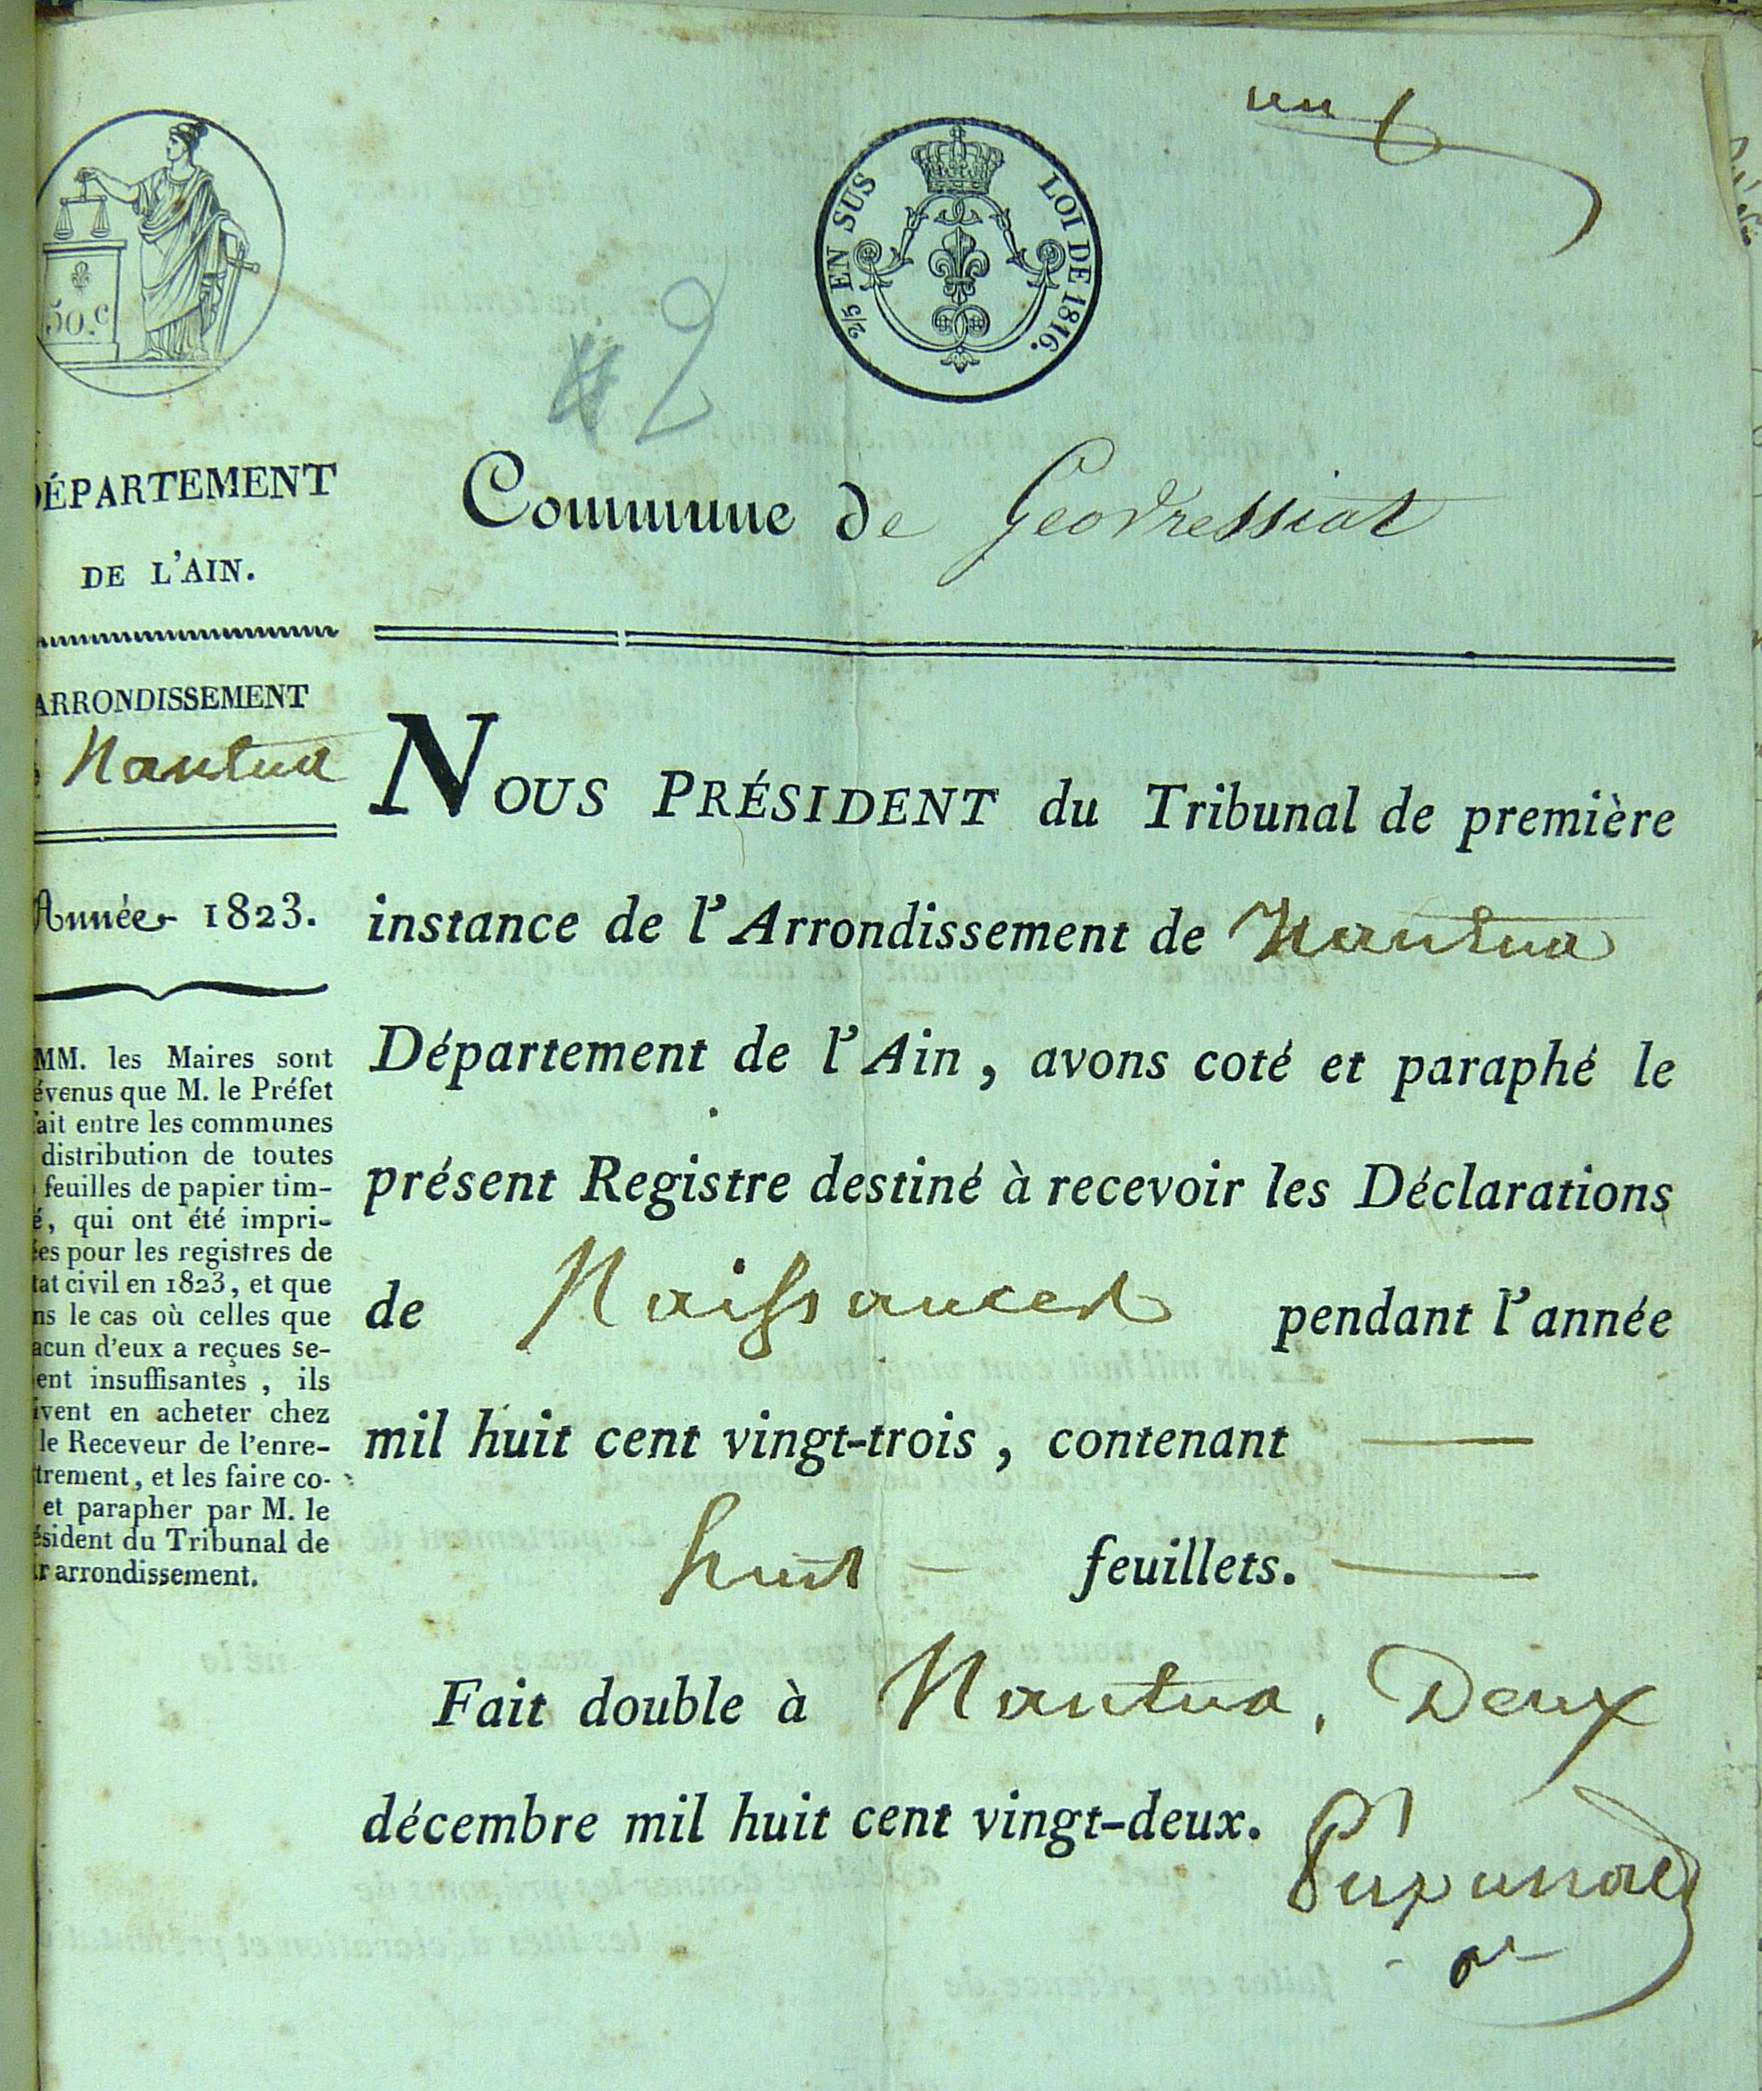 un
2/5 EN SUS
LOI DE 1816.
50.c
2
DÉPARTEMENT
DE L'AIN.
ARRONDISSEMENT
Nantua
Année 1823.
MM. les Maires sont
évenus que M. le Préfet
fait entre les communes
distribution de toutes
feuilles de papier tim-
é, qui ont été impri-
ées pour les registres de
tat civil en 1823, et que
ns le cas où celles que
acun d'eux a reçues se-
ent insuffisantes, ils
ivent en acheter chez
le Receveur de l'enre-
trement, et les faire co-
et parapher par M. le
ésident du Tribunal de
r arrondissement.
Commune de Geovressiat
NOUS PRÉSIDENT du Tribunal de première
instance de l'Arrondissement de Nantua
Département de l'Ain, avons coté et paraphé le
présent Registre destiné à recevoir les Déclarations
de Naissances pendant l'année
mil huit cent vingt-trois, contenant
huit feuillets.
Fait double à Nantua, Deux
décembre mil huit cent vingt-deux.